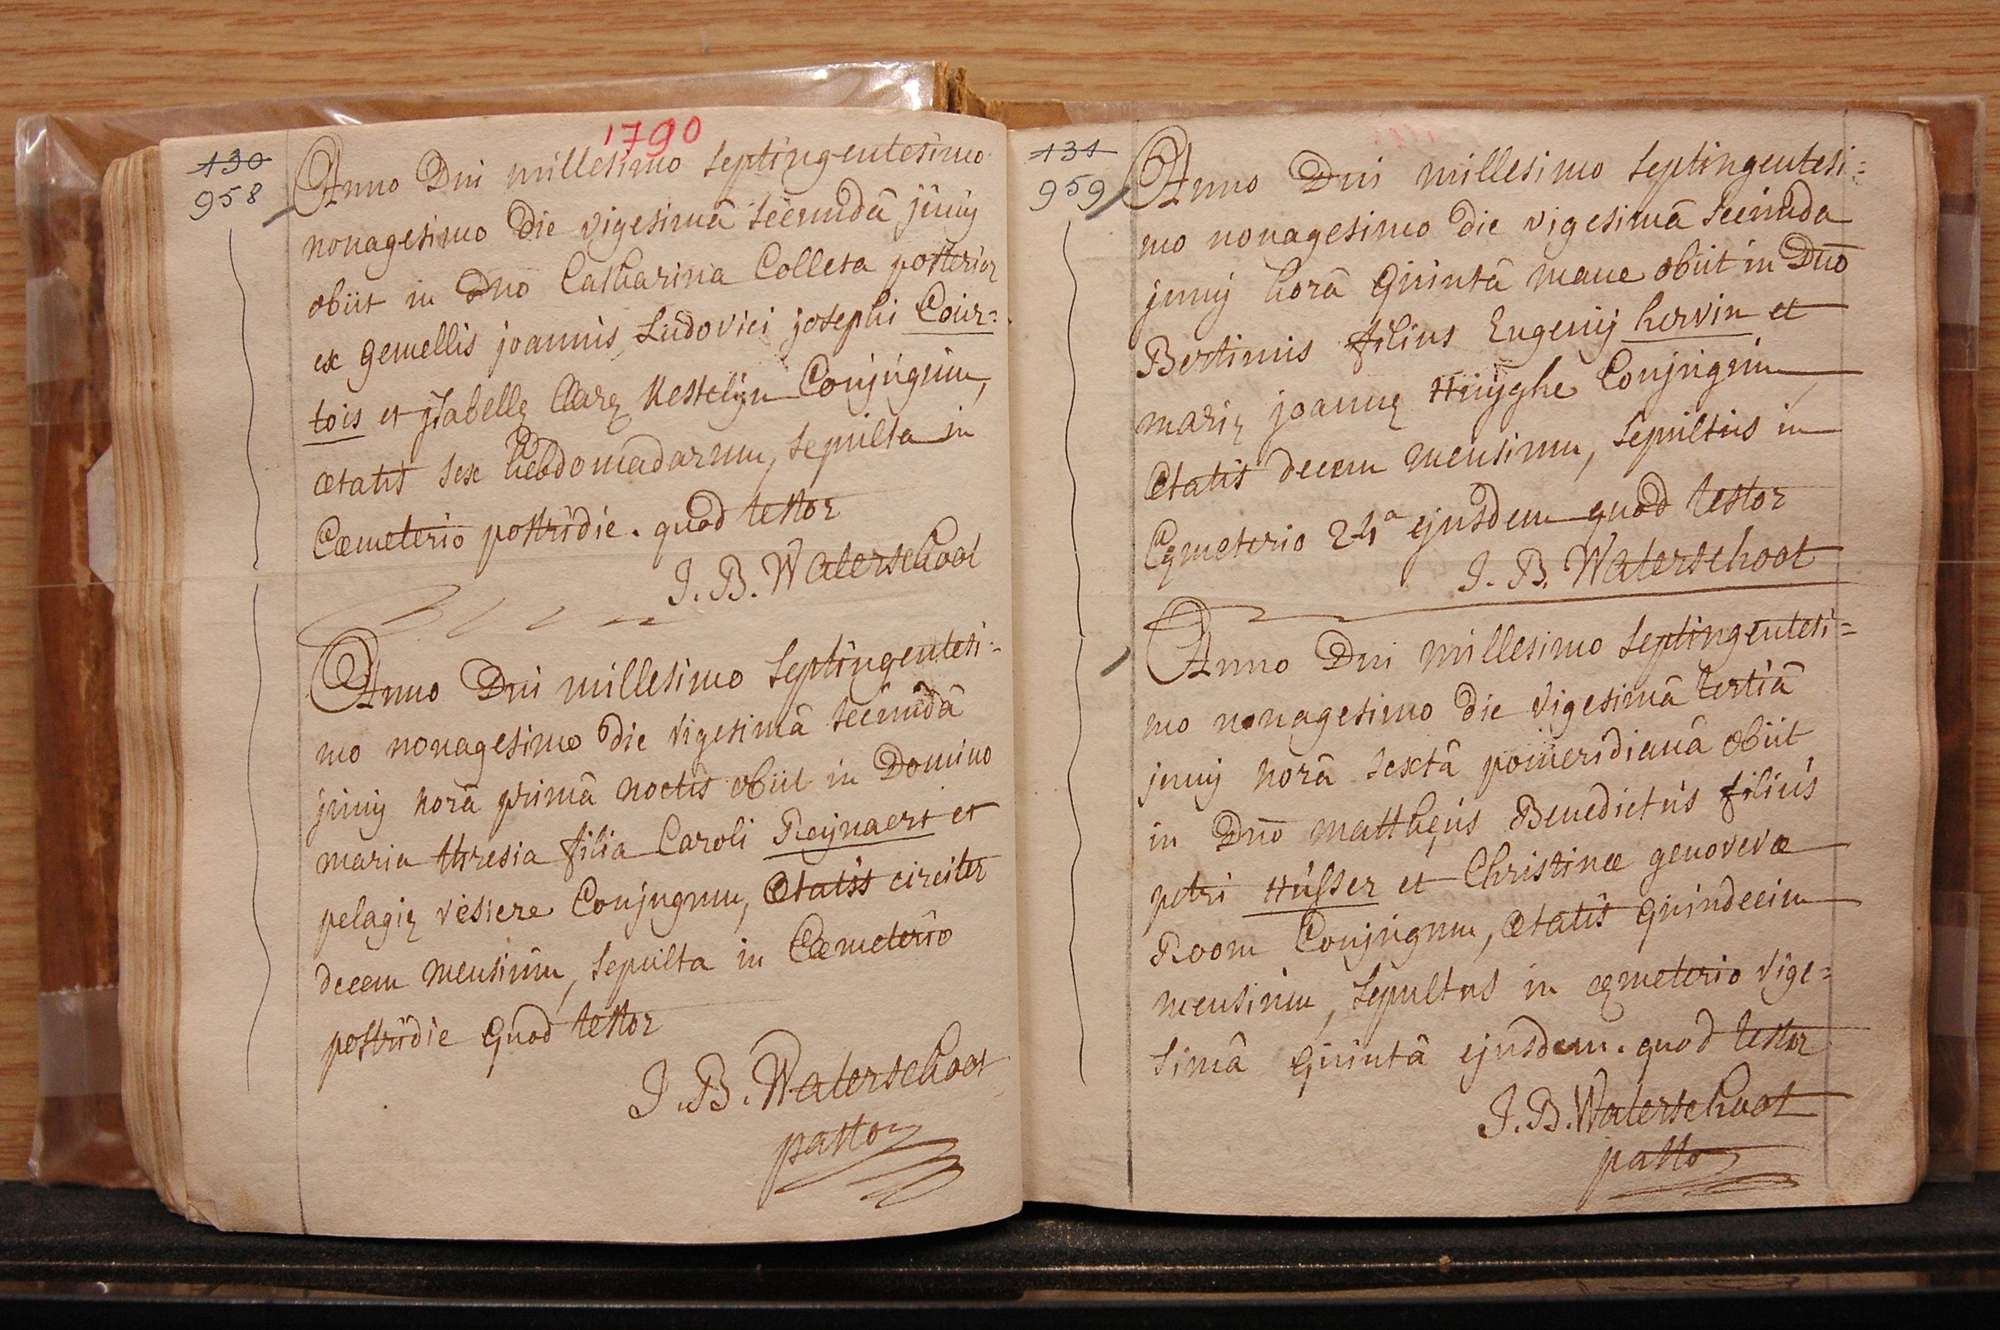 1790
130
958
Anno Dni millesimo septingentesimo
nonagesimo die vigesimâ secundâ junij
obiit in Dno Catharina Colleta posterior
ex gemellis joannis Ludovici josephi Cour=
tois et jsabellę Clarę Kestelijn Conjugum,
ætatis sex hebdomadarum, sepulta in
Cæmeterio postridie. quod testor
J. B. Waterschoot
Anno Dni millesimo septingentesi=
mo nonagesimo die vigesimâ secundâ
junij horâ primâ noctis obiit in Domino
maria theresia filia Caroli Reijnaert et
pelagię vesiere Conjugum, ætatis circiter
decem mensium, sepulta in Cæmeterio
postridie quod testor
J. B. Waterschoot
pastor
131
959
Anno Dni millesimo septingentesi=
mo nonagesimo die vigesimâ secunda
junij horâ quintâ mane obiit in Dno
Bertinus filius Eugenij hervin et
marię joannę Huijghe Conjugum
ætatis decem mensium, sepultus in
Cęmeterio 24a ejusdem quod testor
J. B. Waterschoot
Anno Dni millesimo septingentesi=
mo nonagesimo die vigesimâ tertiâ
junij horâ sextâ pomeridianâ obiit
in Dno matthęus Benedictus filius
petri Husser et Christinæ genovevæ
Room Conjugum, ætatis quindecim
mensium, sepultus in cęmeterio vige=
simâ quintâ ejusdem. quod testor
J. B. Waterschoot
pastor